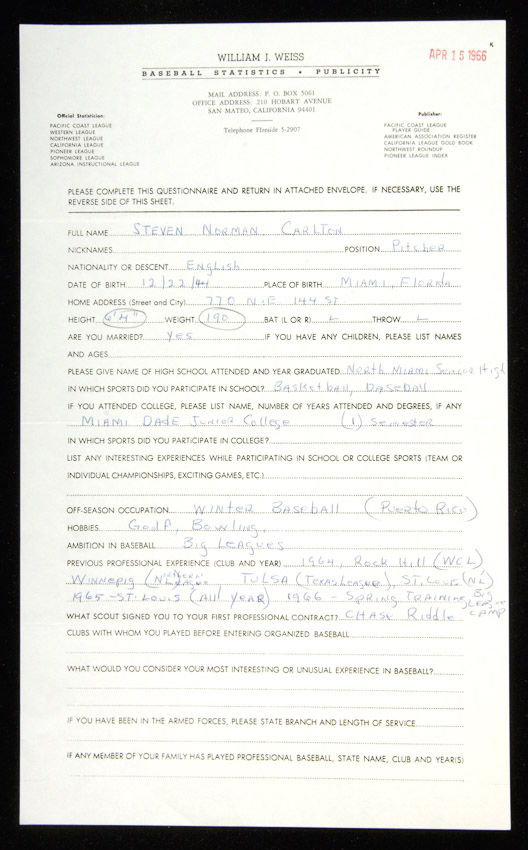 APR 15 1966
WILLIAM J. WEISS
BASEBALL STATISTICS • PUBLICITY
MAIL ADDRESS: P. O. BOX 5061
OFFICE ADDRESS: 210 HOBART AVENUE
SAN MATEO, CALIFORNIA 94401
Telephone FIreside 5-2907
Official Statistician:
PACIFIC COAST LEAGUE
WESTERN LEAGUE
NORTHWEST LEAGUE
CALIFORNIA LEAGUE
PIONEER LEAGUE
SOPHOMORE LEAGUE
ARIZONA INSTRUCTIONAL LEAGUE
Publisher:
PACIFIC COAST LEAGUE
PLAYER GUIDE
AMERICAN ASSOCIATION REGISTER
CALIFORNIA LEAGUE GOLD BOOK
NORTHWEST ROUNDUP
PIONEER LEAGUE INDEX
PLEASE COMPLETE THIS QUESTIONNAIRE AND RETURN IN ATTACHED ENVELOPE. IF NECESSARY, USE THE
REVERSE SIDE OF THIS SHEET.
FULL NAME STEVEN NORMAN CARLTON
NICKNAMES POSITION Pitcher
NATIONALITY OR DESCENT English
DATE OF BIRTH 12/22/44 PLACE OF BIRTH MIAMI, Florida
HOME ADDRESS (Street and City) 770 N.E. 144 ST
HEIGHT 6'4" WEIGHT 190 BAT (L OR R) L THROW L
ARE YOU MARRIED? yes IF YOU HAVE ANY CHILDREN, PLEASE LIST NAMES
AND AGES
PLEASE GIVE NAME OF HIGH SCHOOL ATTENDED AND YEAR GRADUATED North Miami Senior High
IN WHICH SPORTS DID YOU PARTICIPATE IN SCHOOL? Basketball, Baseball
IF YOU ATTENDED COLLEGE, PLEASE LIST NAME, NUMBER OF YEARS ATTENDED AND DEGREES, IF ANY
MIAMI DADE JUNIOR College (1) Semester
IN WHICH SPORTS DID YOU PARTICIPATE IN COLLEGE?
LIST ANY INTERESTING EXPERIENCES WHILE PARTICIPATING IN SCHOOL OR COLLEGE SPORTS (TEAM OR
INDIVIDUAL CHAMPIONSHIPS, EXCITING GAMES, ETC.)
OFF-SEASON OCCUPATION WINTER BASEBALL (Puerto Rico)
HOBBIES Golf, Bowling.
AMBITION IN BASEBALL Big Leagues
PREVIOUS PROFESSIONAL EXPERIENCE (CLUB AND YEAR) 1964, Rock Hill (WCL)
Winnepig (Northern League), TULSA (Texas League), ST. Louis (NL)
1965 - ST. LOUIS (All Year) 1966 - SPRING TRAINING Big League CAMP
WHAT SCOUT SIGNED YOU TO YOUR FIRST PROFESSIONAL CONTRACT? CHASE Riddle
CLUBS WITH WHOM YOU PLAYED BEFORE ENTERING ORGANIZED BASEBALL
WHAT WOULD YOU CONSIDER YOUR MOST INTERESTING OR UNUSUAL EXPERIENCE IN BASEBALL?
IF YOU HAVE BEEN IN THE ARMED FORCES, PLEASE STATE BRANCH AND LENGTH OF SERVICE
IF ANY MEMBER OF YOUR FAMILY HAS PLAYED PROFESSIONAL BASEBALL, STATE NAME, CLUB AND YEAR(S)